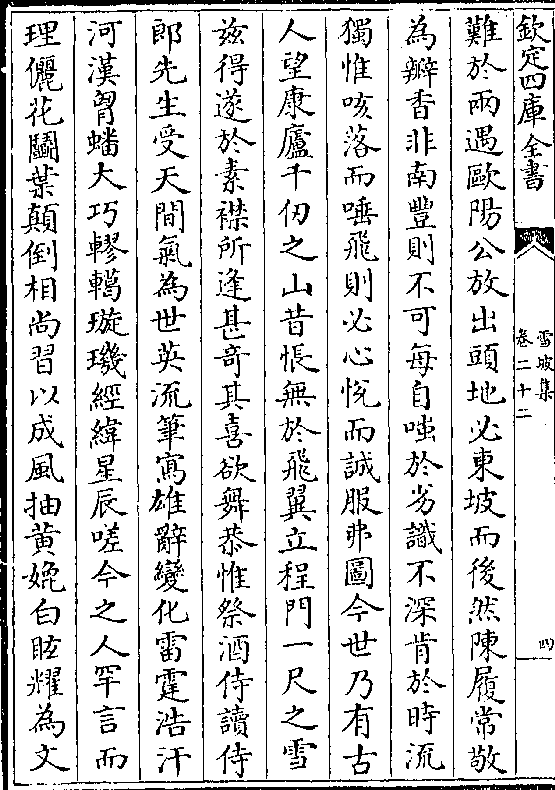 欽定四庫全書
雪坡集
卷二十二
四
難於兩遇歐陽公放出頭地必東坡而後然陳履常敬
為瓣香非南豐則不可每自嗤於劣識不深肯於時流
獨惟咳落而唾飛則必心悅而誠服弗圖今世乃有古
人望康廬千仞之山昔悵無於飛翼立程門一尺之雪
兹得遂於素襟所逢甚竒其喜欲舞恭惟祭酒侍讀侍
郎先生受天間氣為世英流筆寫雄辭變化雷霆浩汗
河漢胷蟠大巧轇轕璇璣經緯星辰嗟今之人罕言而
理儷花鬭葉顛倒相尚習以成風抽黄媲白眩耀為文